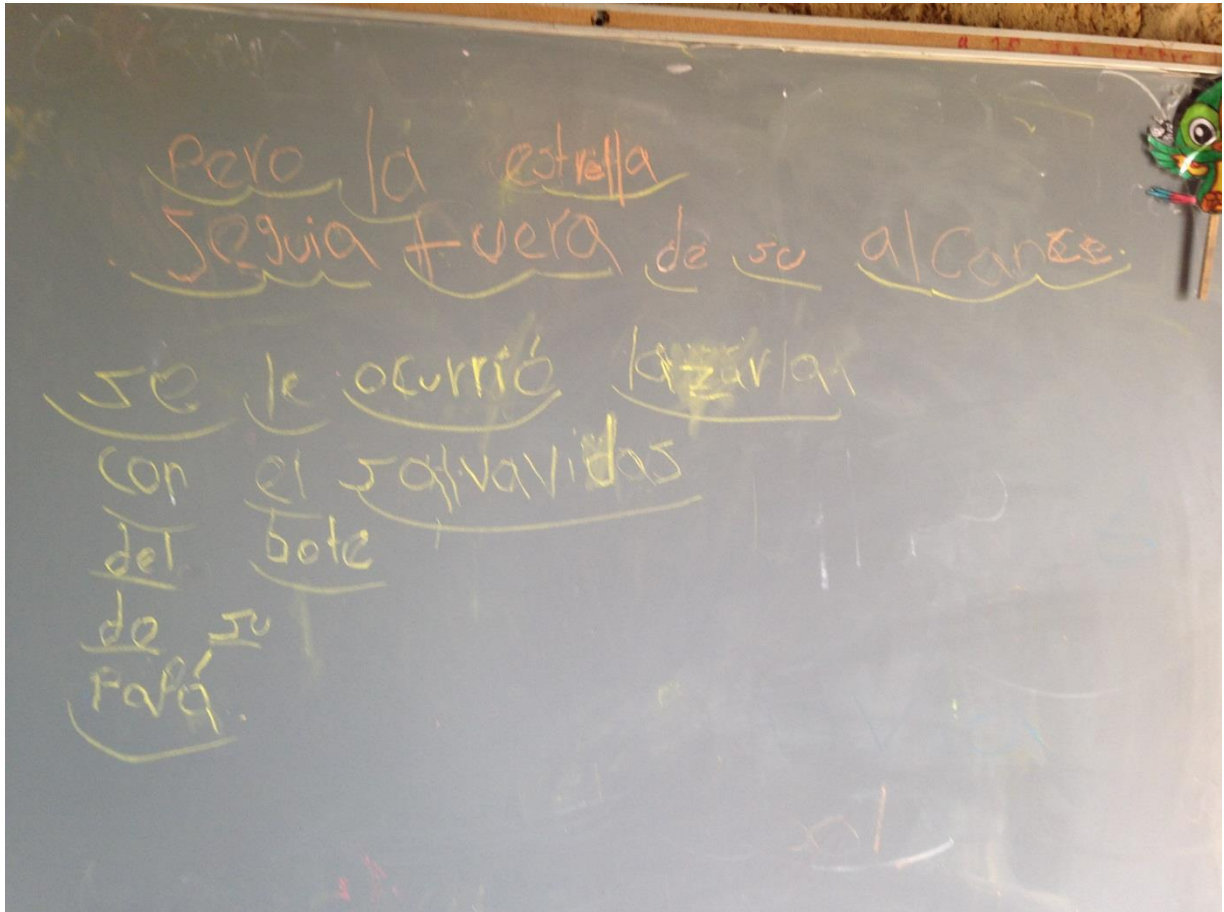 Pero la estrella
Seguia fuera de su alcance.
se le ocurrió lazarla
con el salvavidas
del bote
de su
Papá.